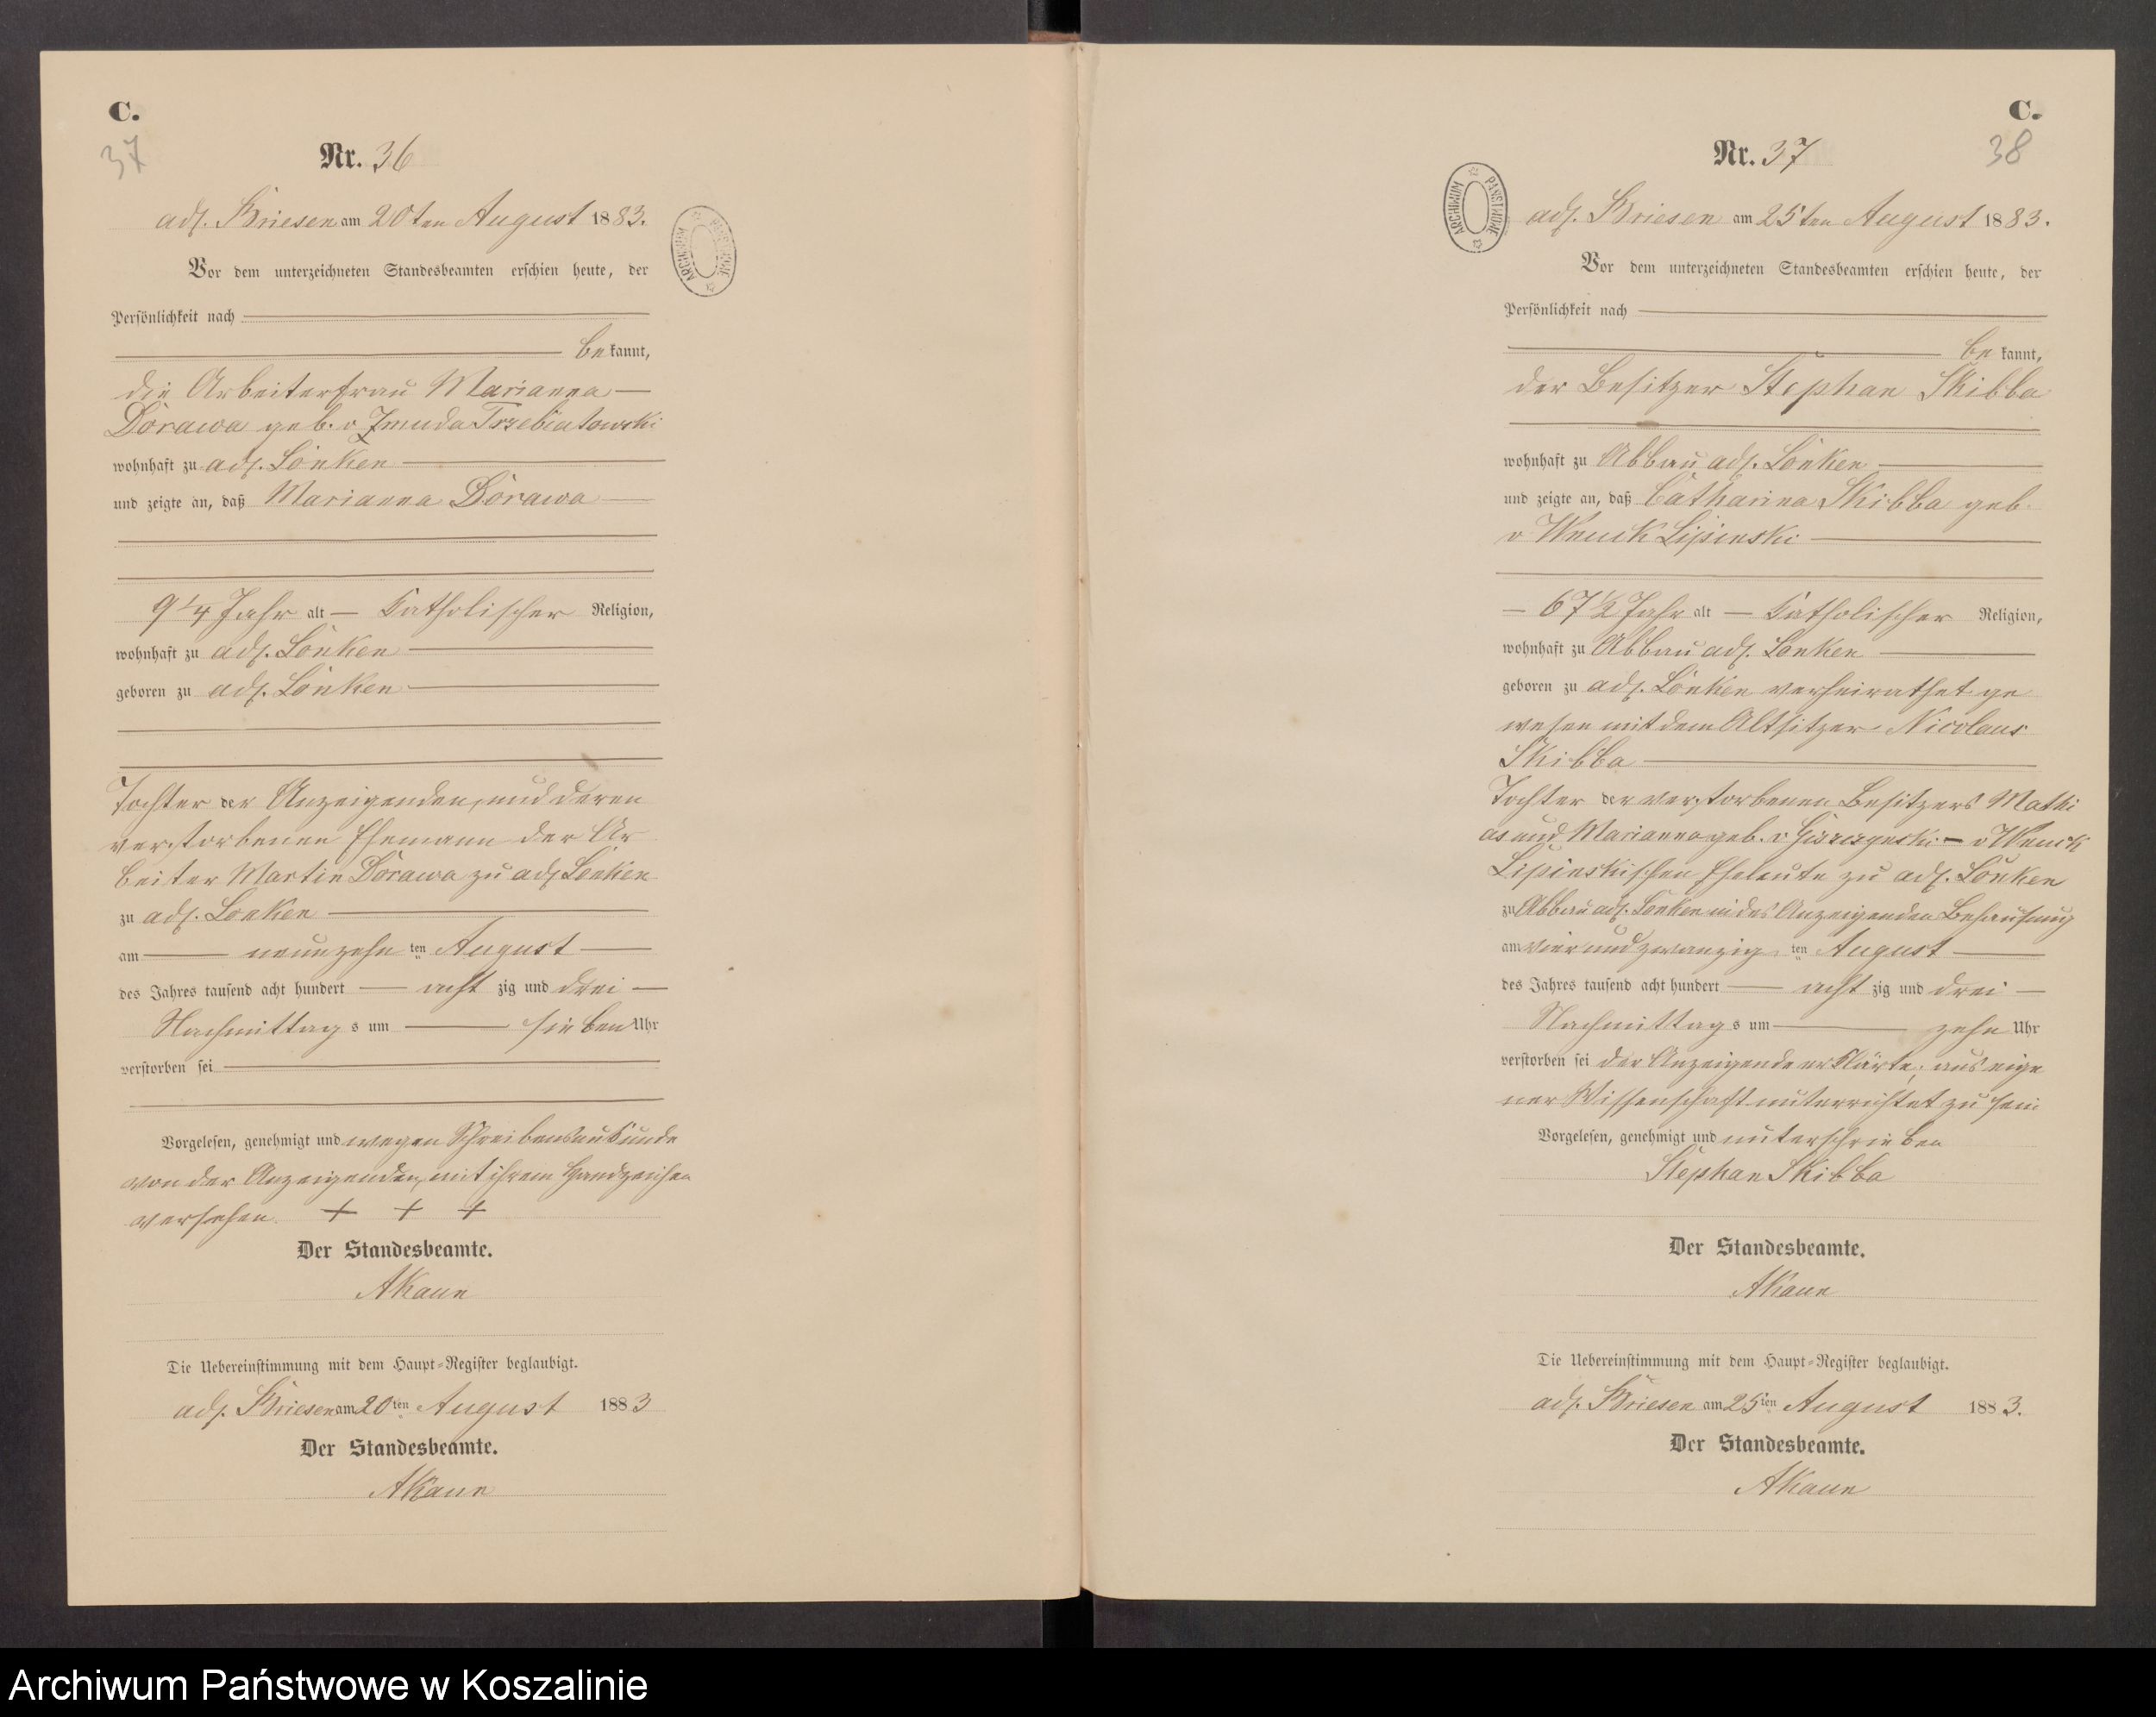 C.
37
Nr. 36
adl. Briesen am 20ten August 1883.
Vor dem unterzeichneten Standesbeamten erschien heute, der
Persönlichkeit nach
bekannt,
die Arbeiterfrau Marianna
Dorawa geb. v Zmuda Trzebiatowski
wohnhaft zu adl. Lonken
und zeigte an, daß Marianna Dorawa
9 1/4 Jahr alt — katholischer Religion,
wohnhaft zu adl. Lonken
geboren zu adl. Lonken
Tochter der Anzeigenden, und deren
verstorbenen Ehemann der Ar
beiter Martin Dorawa zu adl Lonken
zu adl. Lonken
am neunzehn ten August
des Jahres tausend acht hundert acht zig und drei
Nachmittags um sieben Uhr
verstorben sei
Vorgelesen, genehmigt und wegen Schreibensunkunde
von der Anzeigenden mit ihrem Handzeichen
versehen. + + +
Der Standesbeamte.
AKaun
Die Uebereinstimmung mit dem Haupt-Register beglaubigt.
adl. Briesen am 20ten August 1883
Der Standesbeamte.
AKaun
ARCHIWUM PAŃSTWOWE
C.
38
Nr. 37
ARCHIWUM PAŃSTWOWE
adl. Briesen am 25ten August 1883.
Vor dem unterzeichneten Standesbeamten erschien heute, der
Persönlichkeit nach
bekannt,
der Besitzer Stephan Skibba
wohnhaft zu Abbau adl. Lonken
und zeigte an, daß Catharina Skibba geb.
v Wnuck Lipinski
67 1/2 Jahr alt — katholischer Religion,
wohnhaft zu Abbau adl. Lonken
geboren zu adl. Lonken verheirathet ge
wesen mit dem Altsitzer Nicolaus
Skibba
Tochter der verstorbenen Besitzers Mathi
as und Marianna geb. v — v Wnuck
Lipinskischen Eheleute zu adl. Lonken
zu Abbau adl. Lonken in des Anzeigenden Behausung
am vierundzwanzig ten August
des Jahres tausend acht hundert acht zig und drei
Nachmittags um zehn Uhr
verstorben sei der Anzeigende erklärte, aus eige
ner Wissenschaft unterrichtet zu sein
Vorgelesen, genehmigt und unterschrieben
Stephan Skibba
Der Standesbeamte.
AKaun
Die Uebereinstimmung mit dem Haupt-Register beglaubigt.
adl. Briesen am 25ten August 1883.
Der Standesbeamte.
AKaun
Archiwum Państwowe w Koszalinie